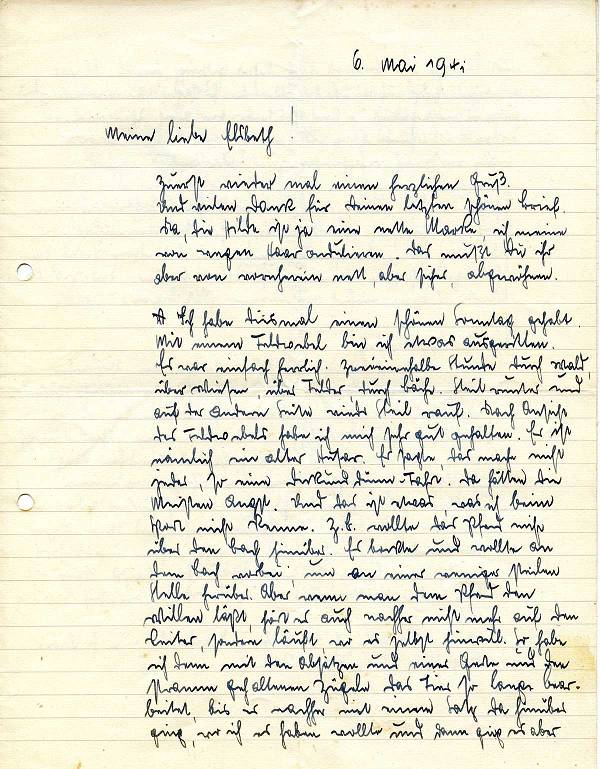 6. Mai 1941
Meine liebe Elsbeth!
Zuerst wieder mal einen herzlichen Gruß.
Und vielen Dank für Deinen letzten schönen Brief.
Na, die Hilde ist ja eine nette Marke, ich meine
von wegen Haar ondulieren. Das mußt Du ihr
aber von vorneherein nett, aber sicher, abgewöhnen.
Ich habe diesmal einen schönen Sonntag gehabt.
Mit einem Feldwebel bin ich etwas ausgeritten.
Es war einfach herrlich. Zweieinhalbe Stunde durch Wald,
über Wiesen, über Felder, durch Bäche. Steil runter und
auf der andern Seite wieder steil rauf. Nach Ansicht
des Feldwebels habe ich mich sehr gut gehalten. Er ist
nämlich ein alter Husar. Er sagte, das mache nicht
jeder, so eine Dickunddünn-Fahrt. Da hätten die
Meisten Angst. Und das ist etwas, was ich beim
Sport nicht kenne. Z.B. wollte das Pferd nicht
über den Bach hinüber. Es bockte und wollte an
dem Bach vorbei, um an einer weniger steilen
Stelle herüber. Aber wenn man dem Pferd den
Willen läßt, hört es auch nachher nicht mehr auf den
Reiter, sondern läuft, wo es selbst hinwill. So habe
ich denn mit den Absätzen und einer Gerte und den
stramm gehaltenen Zügeln das Tier so lange bear-
beitet, bis es nachher mit einem Satz da hinüber
ging, wo ich es haben wollte und dann ging es aber